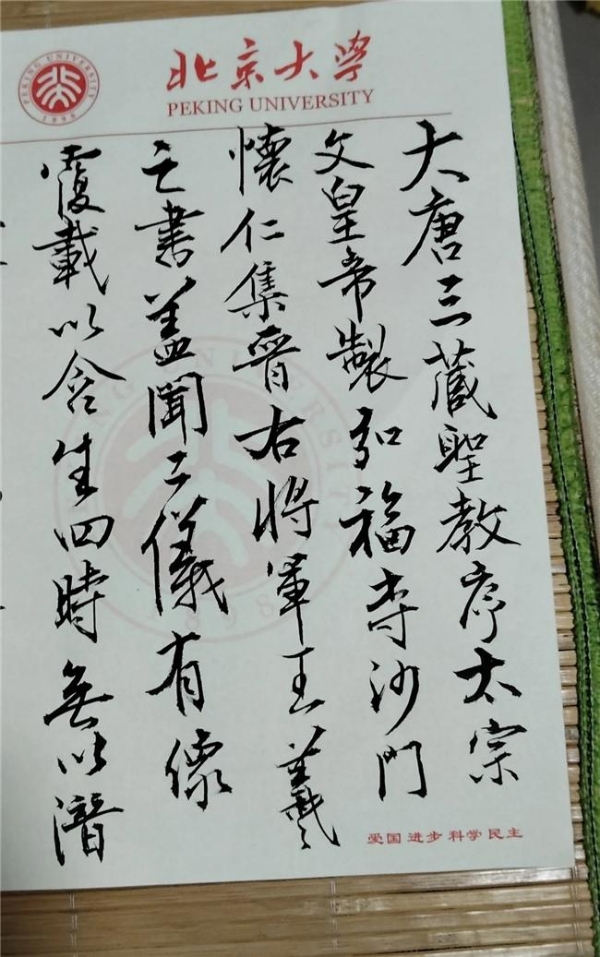 北京大学
PEKING UNIVERSITY
PEKING UNIVERSITY
1898
大唐三藏聖教序太宗
文皇帝製弘福寺沙門
懷仁集晉右將軍王羲
之書蓋聞二儀有像
覆載以含生四時無以潛
爱国 进步 科学 民主